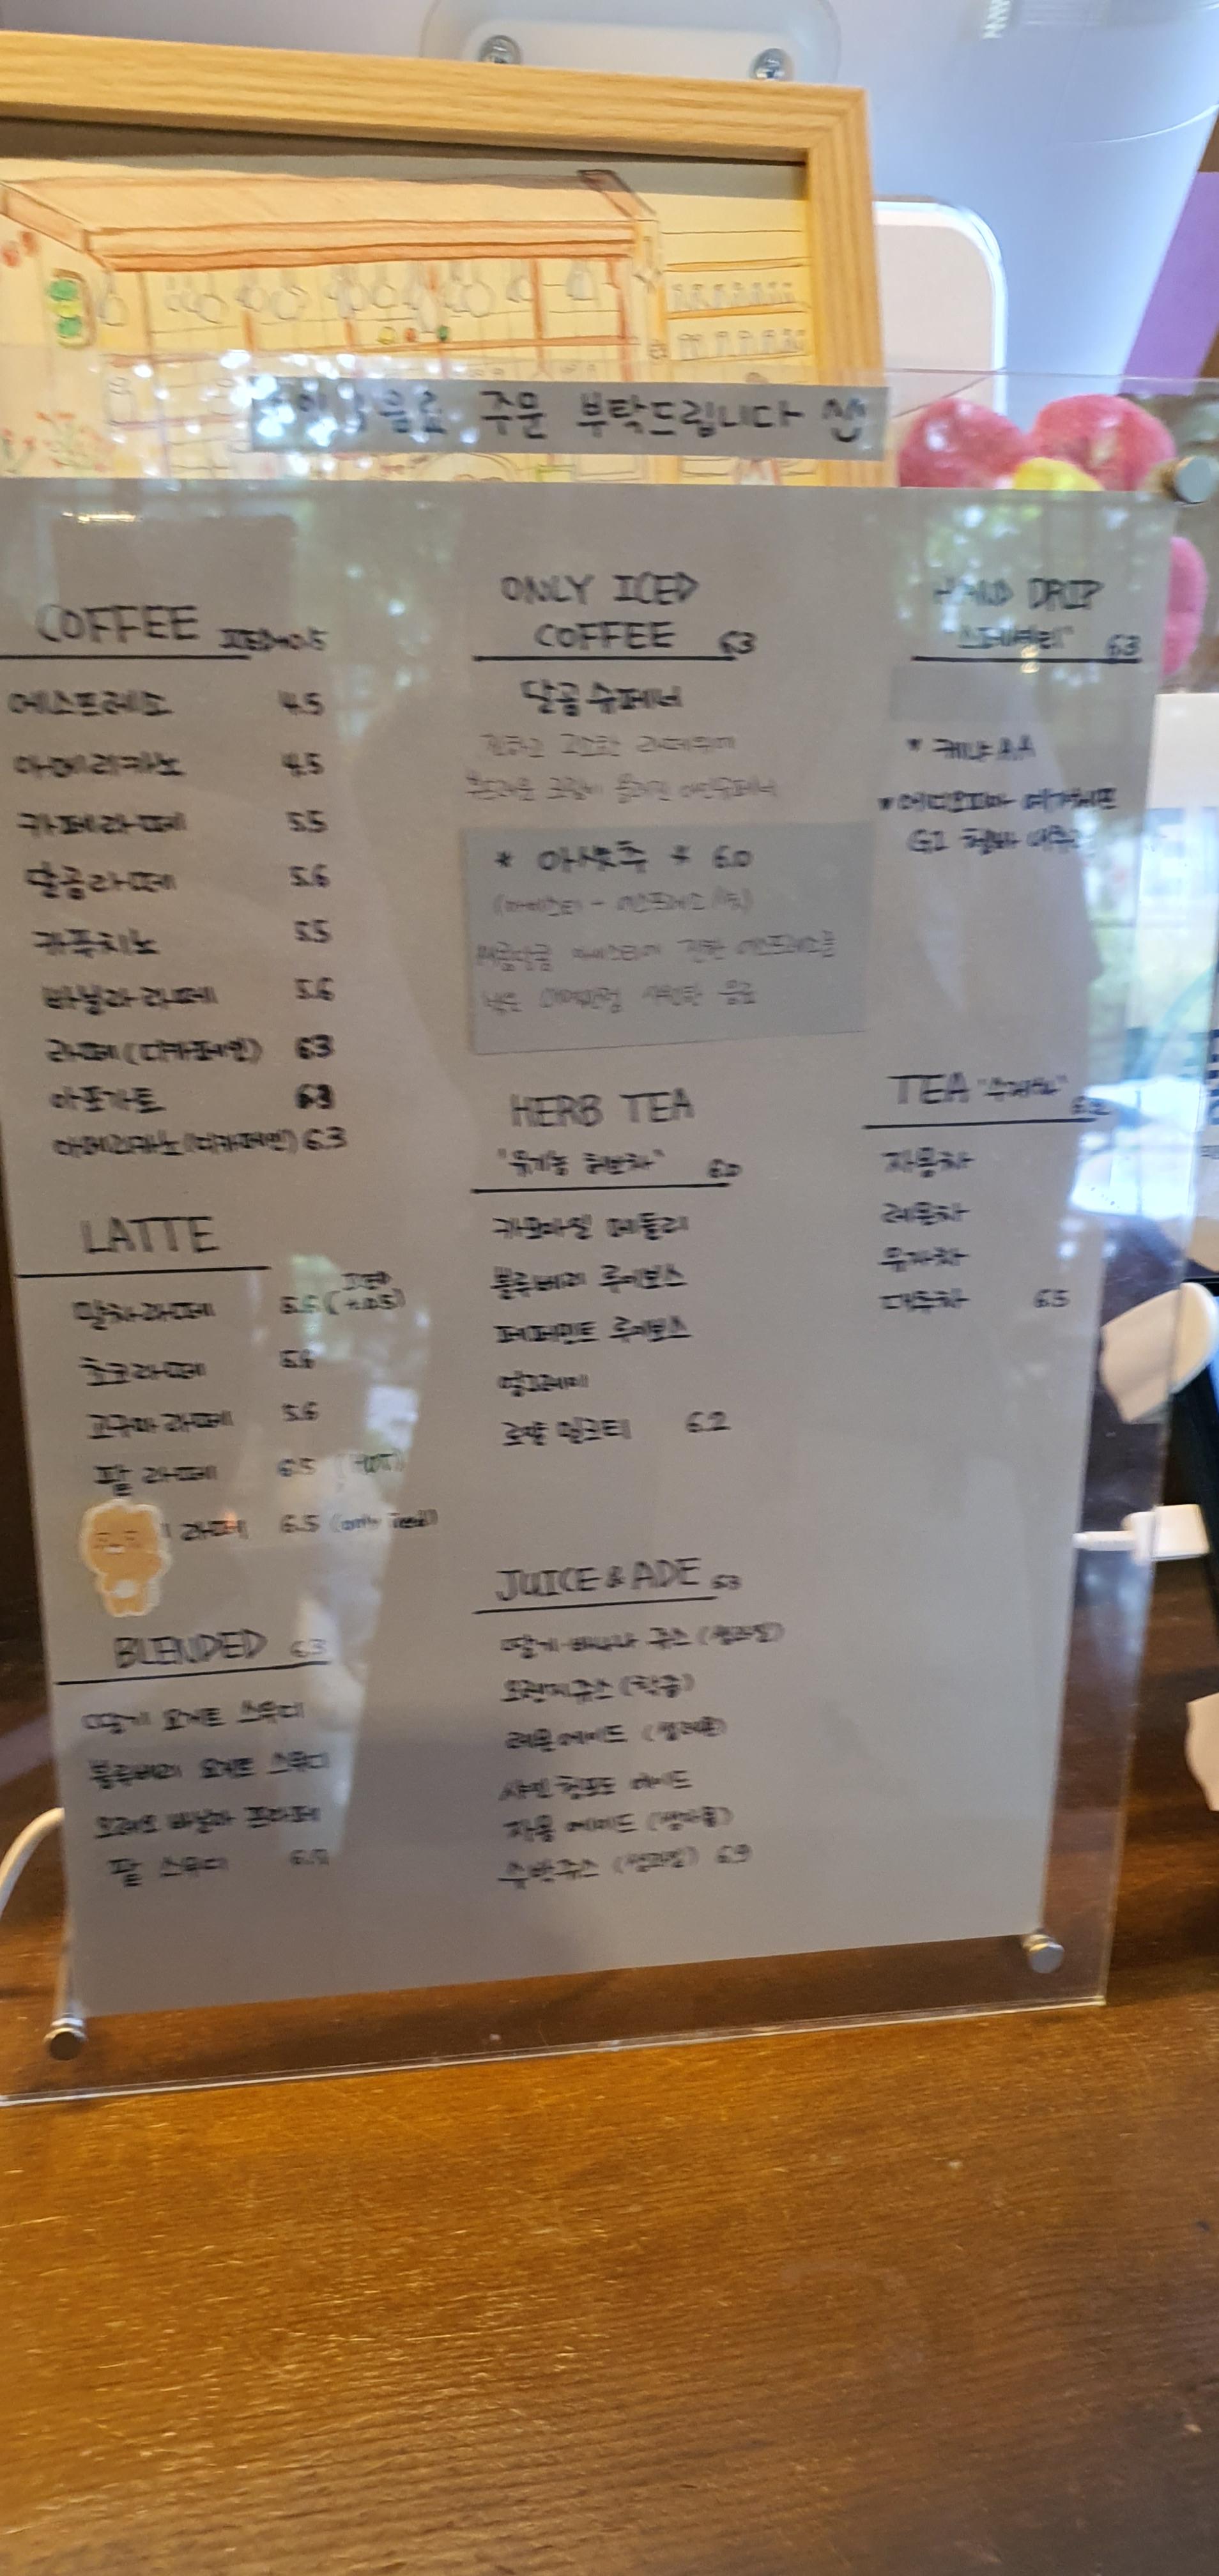 음료 주문 부탁드립니다
COFFEE ICED+0.5
에스프레소 4.5
아메리카노 4.5
카페라떼 5.5
달콤라떼 5.6
카푸치노 5.5
바닐라라떼 5.6
라떼(디카페인) 6.3
아포가토 6.3
아메리카노(디카페인) 6.3
LATTE
말차라떼 5.6 (ICED +0.5)
초코라떼 5.6
고구마라떼 5.6
팥 라떼 6.5 (HOT)
라떼 6.5 (only Iced)
BLENDED 6.3
딸기 요거트 스무디
블루베리 요거트 스무디
오레오 바닐라 프라페
팥 스무디
ONLY ICED
COFFEE 6.3
달콤슈페너
* 아샷추 * 6.0
HERB TEA
"유기농 허브차" 6.0
카모마일 메들리
블루베리 루이보스
페퍼민트 루이보스
얼그레이
로얄 밀크티 6.2
JUICE & ADE 6.3
딸기 바나나 쥬스 (생과일)
오렌지쥬스 (착즙)
레몬에이드 (생레몬)
샤인 청포도 에이드
자몽 에이드 (생자몽)
수박쥬스 (생과일) 6.9
HAND DRIP
"스페셜티" 6.3
* 케냐AA
* 에티오피아 예가체프
G1
TEA "수제청"
자몽차
레몬차
유자차
대추차 6.5